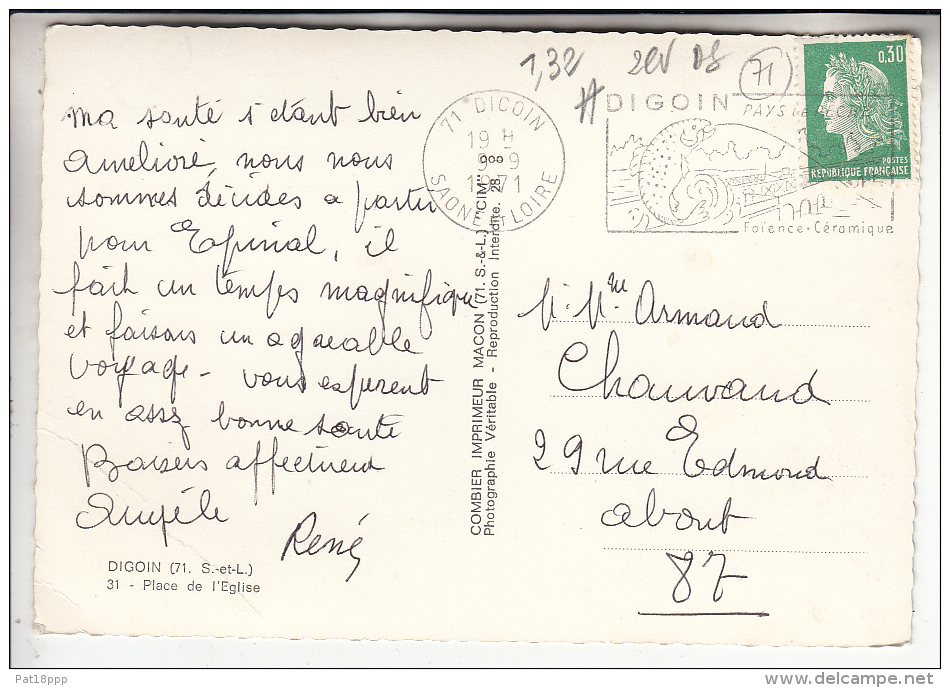 ma santé s'etant bien
amelioré nous nous
sommes décides a partir
pour Epinal, il
fait un temps magnifique
et faisons un agreable
voyage - vous esperent
en assz bonne sante
Baisers affectueux
Angèle
René
DIGOIN (71. S.-et-L.)
31 - Place de l'Eglise
COMBIER IMPRIMEUR MACON (71. S.-&-L.) "CIM"
Photographie Véritable - Reproduction Interdite. 28.900
1,32
71
71 DIGOIN
19 H
9 - 9
1971
SAONE ET LOIRE
DIGOIN
PAYS de
Faïence - Céramique
0,30
POSTES
REPUBLIQUE FRANÇAISE
M. Mme Armand
Chauvaud
29 rue Edmond
about
87
Pat18ppp